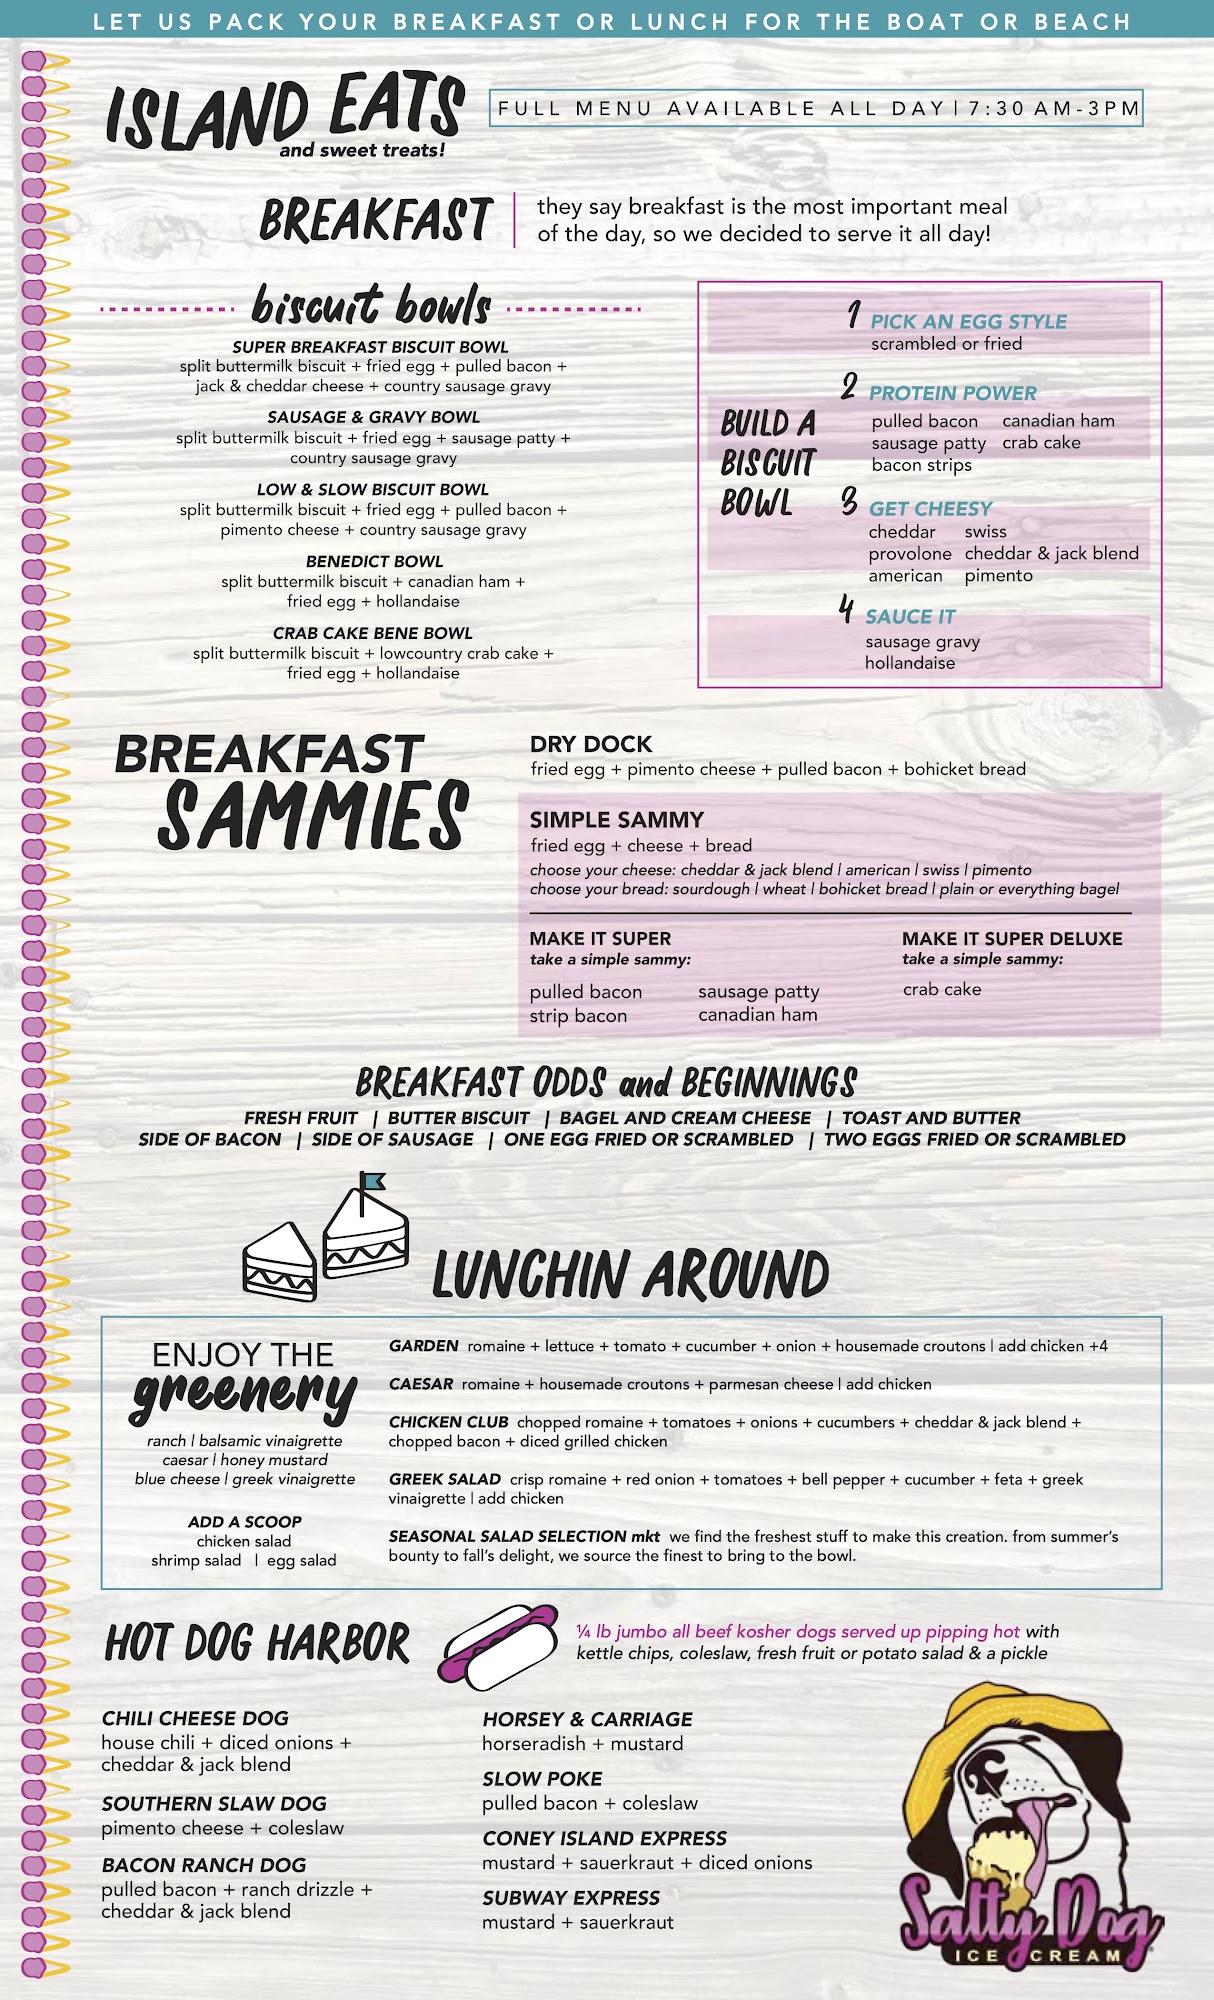 LET US PACK YOUR BREAKFAST OR LUNCH FOR THE BOAT OR BEACH
ISLAND EATS
and sweet treats!
FULL MENU AVAILABLE ALL DAY | 7:30 AM-3PM
BREAKFAST
they say breakfast is the most important meal
of the day, so we decided to serve it all day!
biscuit bowls
SUPER BREAKFAST BISCUIT BOWL
split buttermilk biscuit + fried egg + pulled bacon +
jack & cheddar cheese + country sausage gravy
SAUSAGE & GRAVY BOWL
split buttermilk biscuit + fried egg + sausage patty +
country sausage gravy
LOW & SLOW BISCUIT BOWL
split buttermilk biscuit + fried egg + pulled bacon +
pimento cheese + country sausage gravy
BENEDICT BOWL
split buttermilk biscuit + canadian ham +
fried egg + hollandaise
CRAB CAKE BENE BOWL
split buttermilk biscuit + lowcountry crab cake +
fried egg + hollandaise
BUILD A
BISCUIT
BOWL
1 PICK AN EGG STYLE
scrambled or fried
2 PROTEIN POWER
pulled bacon canadian ham
sausage patty crab cake
bacon strips
3 GET CHEESY
cheddar swiss
provolone cheddar & jack blend
american pimento
4 SAUCE IT
sausage gravy
hollandaise
BREAKFAST
SAMMIES
DRY DOCK
fried egg + pimento cheese + pulled bacon + bohicket bread
SIMPLE SAMMY
fried egg + cheese + bread
choose your cheese: cheddar & jack blend | american | swiss | pimento
choose your bread: sourdough | wheat | bohicket bread | plain or everything bagel
MAKE IT SUPER
take a simple sammy:
pulled bacon sausage patty
strip bacon canadian ham
MAKE IT SUPER DELUXE
take a simple sammy:
crab cake
BREAKFAST ODDS and BEGINNINGS
FRESH FRUIT | BUTTER BISCUIT | BAGEL AND CREAM CHEESE | TOAST AND BUTTER
SIDE OF BACON | SIDE OF SAUSAGE | ONE EGG FRIED OR SCRAMBLED | TWO EGGS FRIED OR SCRAMBLED
LUNCHIN AROUND
ENJOY THE
greenery
ranch | balsamic vinaigrette
caesar | honey mustard
blue cheese | greek vinaigrette
ADD A SCOOP
chicken salad
shrimp salad | egg salad
GARDEN romaine + lettuce + tomato + cucumber + onion + housemade croutons | add chicken +4
CAESAR romaine + housemade croutons + parmesan cheese | add chicken
CHICKEN CLUB chopped romaine + tomatoes + onions + cucumbers + cheddar & jack blend +
chopped bacon + diced grilled chicken
GREEK SALAD crisp romaine + red onion + tomatoes + bell pepper + cucumber + feta + greek
vinaigrette | add chicken
SEASONAL SALAD SELECTION mkt we find the freshest stuff to make this creation. from summer's
bounty to fall's delight, we source the finest to bring to the bowl.
HOT DOG HARBOR
¼ lb jumbo all beef kosher dogs served up pipping hot with
kettle chips, coleslaw, fresh fruit or potato salad & a pickle
CHILI CHEESE DOG
house chili + diced onions +
cheddar & jack blend
SOUTHERN SLAW DOG
pimento cheese + coleslaw
BACON RANCH DOG
pulled bacon + ranch drizzle +
cheddar & jack blend
HORSEY & CARRIAGE
horseradish + mustard
SLOW POKE
pulled bacon + coleslaw
CONEY ISLAND EXPRESS
mustard + sauerkraut + diced onions
SUBWAY EXPRESS
mustard + sauerkraut
Salty Dog
ICE CREAM